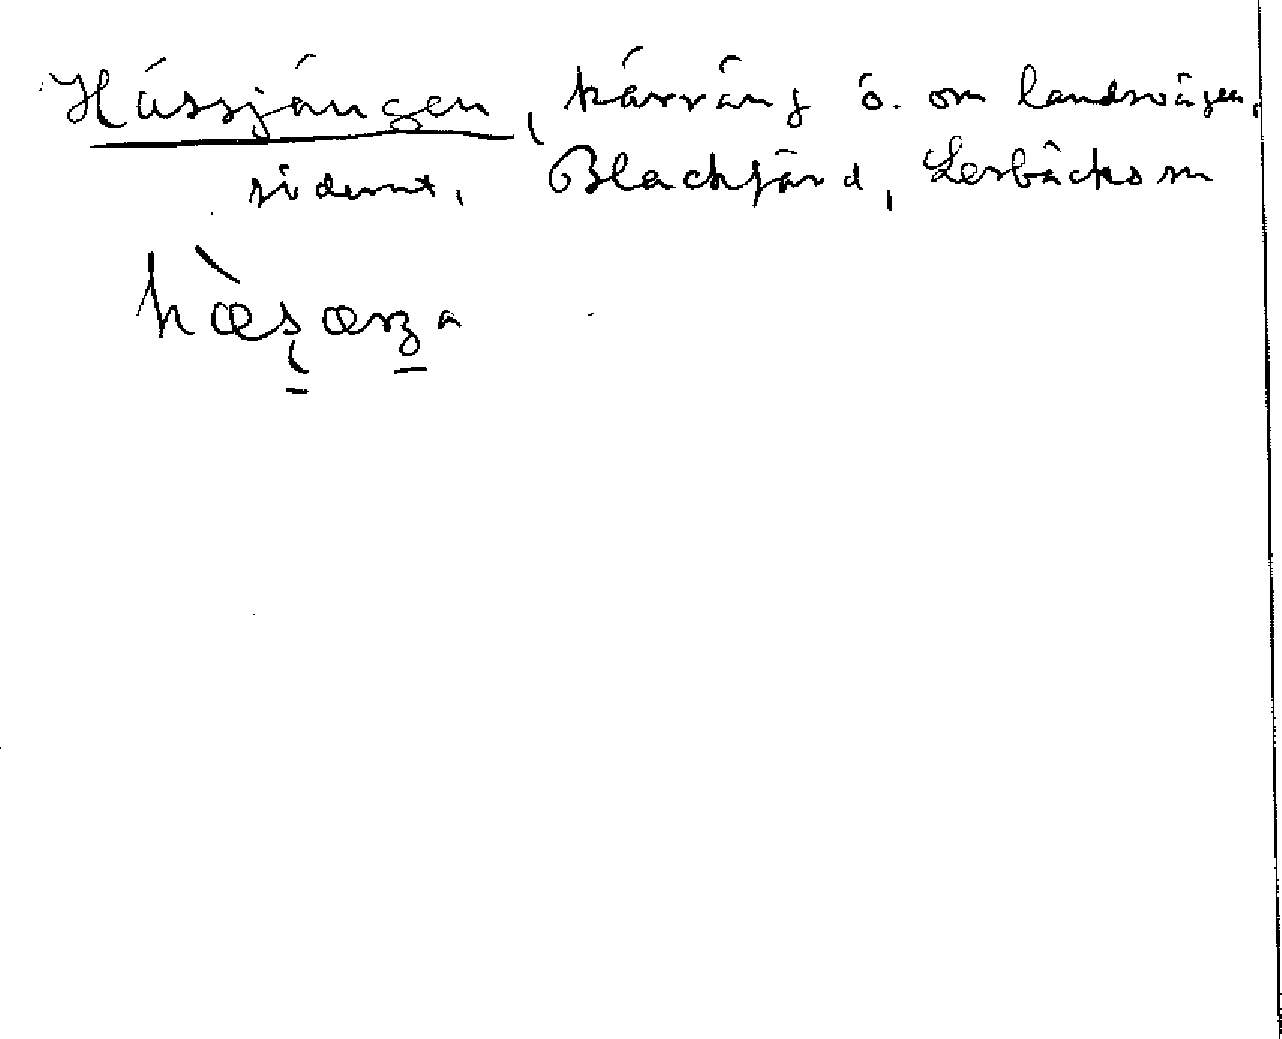 Hässjängen, kärräng ö. om landsvägen,
söderut, Blackfjärd, Lerbäcks sn
hæsænga